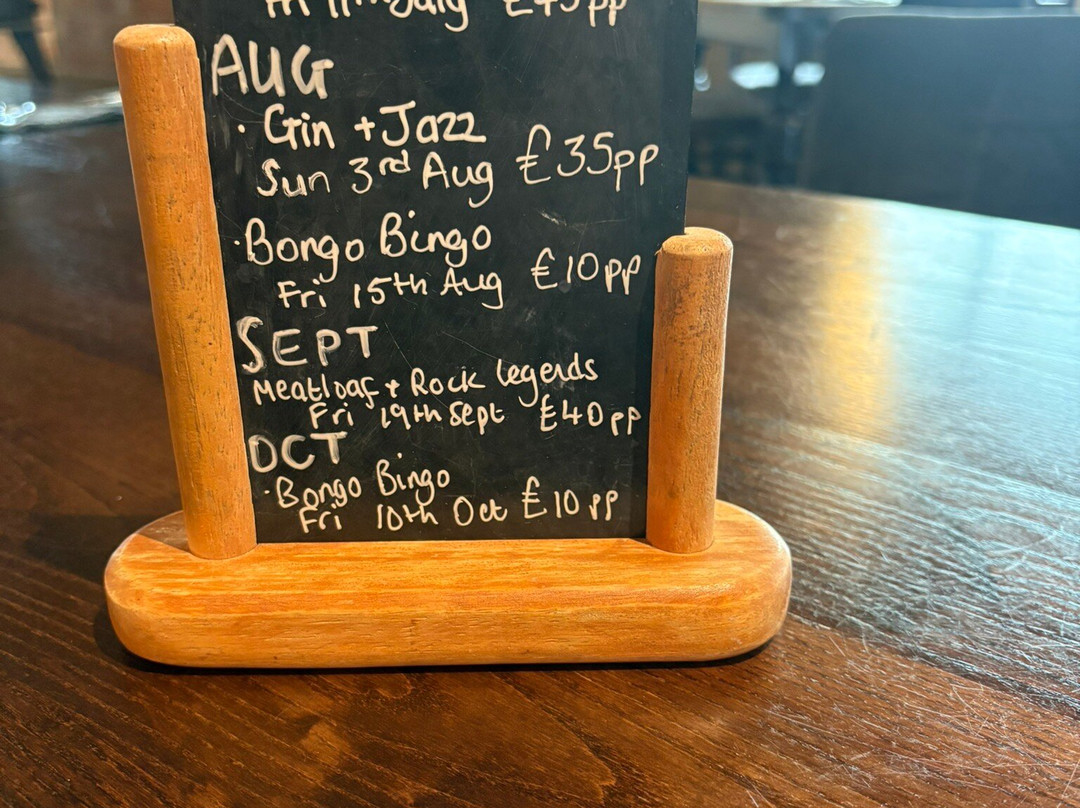 AUG
· Gin + Jazz
Sun 3rd Aug £35pp
· Bongo Bingo
Fri 15th Aug £10pp
SEPT
Meatloaf + Rock legends
Fri 19th Sept £40pp
OCT
· Bongo Bingo
Fri 10th Oct £10pp